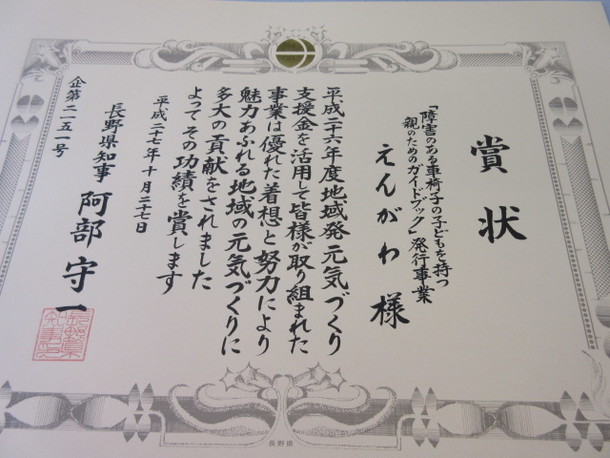 賞状
「障害のある車椅子の子どもを持つ
親のためのガイドブック」発行事業
えんがわ様
平成二十六年度地域発元気づくり
支援金を活用して皆様が取り組まれた
事業は優れた着想と努力により
魅力あふれる地域の元気づくりに
多大の貢献をされました
よってその功績を賞します
平成二十七年十月二十七日
長野県知事 阿部守一
企第二一五一号
長野県